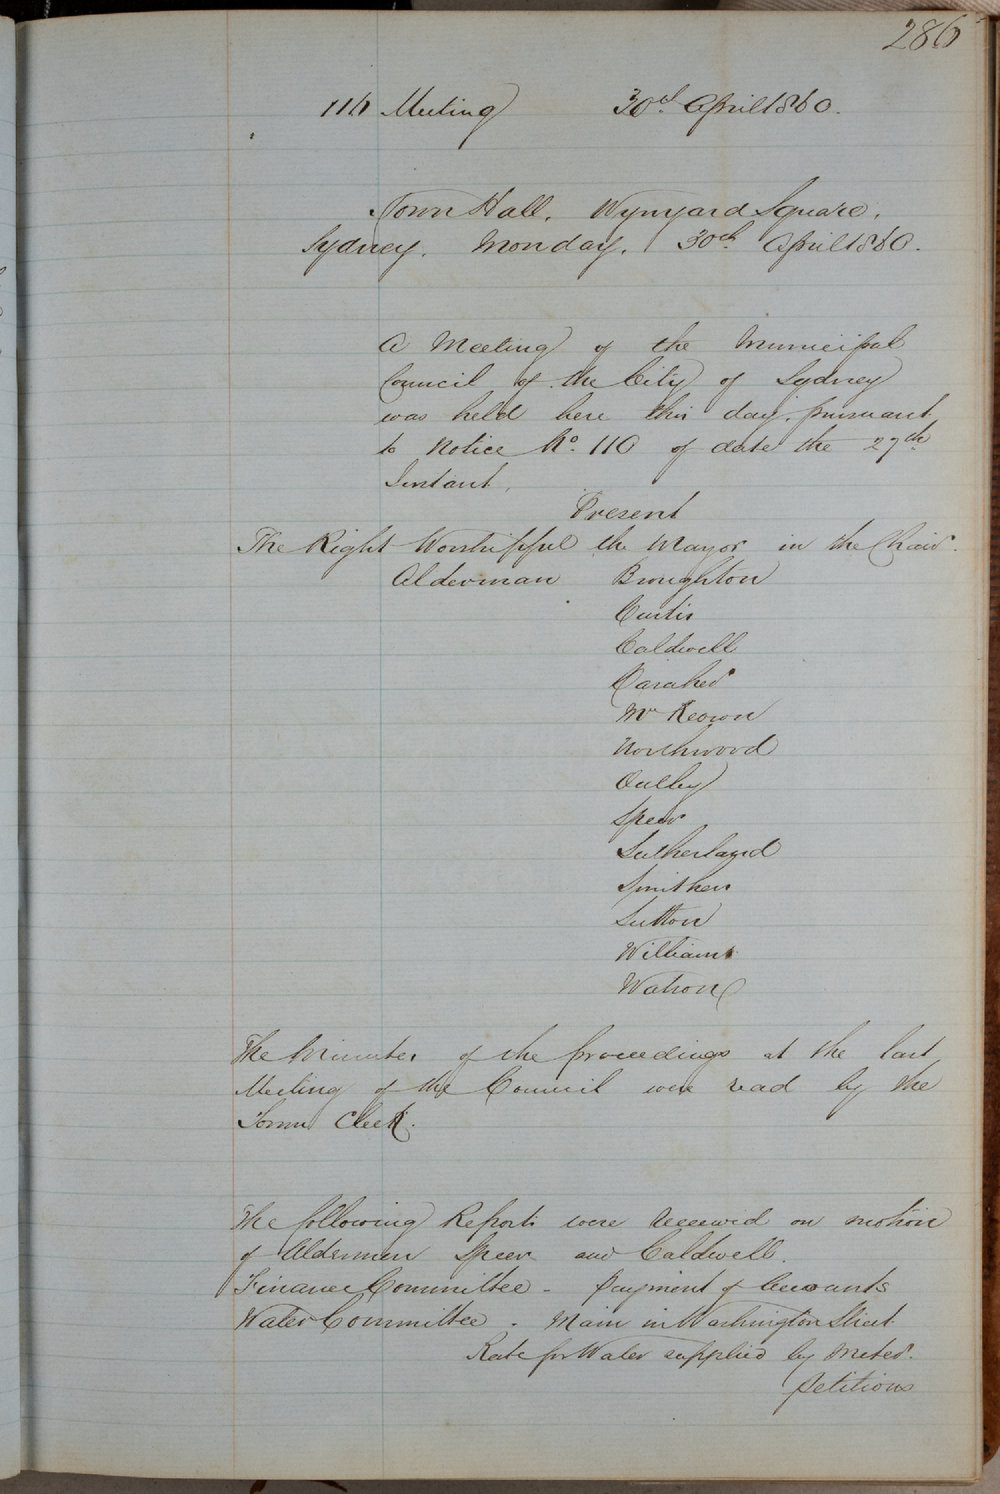 286
116 Meeting 30th April 1860.
Town Hall. Wynyard Square.
Sydney. Monday. 30th April 1860.
A Meeting of the Municipal
Council of the City of Sydney
was held here this day, pursuant
to Notice No. 110 of date the 27th
Instant.
Present
The Right Worshipful the Mayor in the Chair.
Alderman Broughton
Curtis
Caldwell
Caraher
Mc Keown
Northwood
Oatley
Speer
Sutherland
Smithers
Sutton
Williams
Watson
The Minutes of the proceedings at the last
Meeting of the Council were read by the
Town Clerk.
The following Reports were received on motion
of Aldermen Speer and Caldwell.
Finance Committee - Payment of Accounts
Water Committee - Main in Washington Street
Rate for Water supplied by Meter.
Petitions